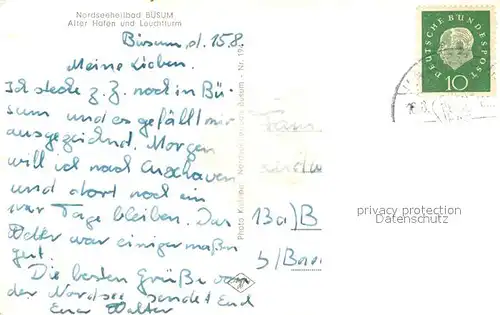 Nordseeheilbad BÜSUM
Alter Hafen und Leuchtturm
Büsum, d. 15.8.
Meine Lieben.
Ich stecke z. Z. noch in Bü-
sum und es gefällt mir
ausgezeichnet. Morgen
will ich nach Cuxhaven
und dort noch ein
paar Tage bleiben. Das
Wetter war einigermaßen
gut.
Die besten Grüße von
der Nordsee sendet Euch
Euer Walter
DEUTSCHE BUNDESPOST
10
Fam
13a) B
b/Bam
privacy protection
Datenschutz